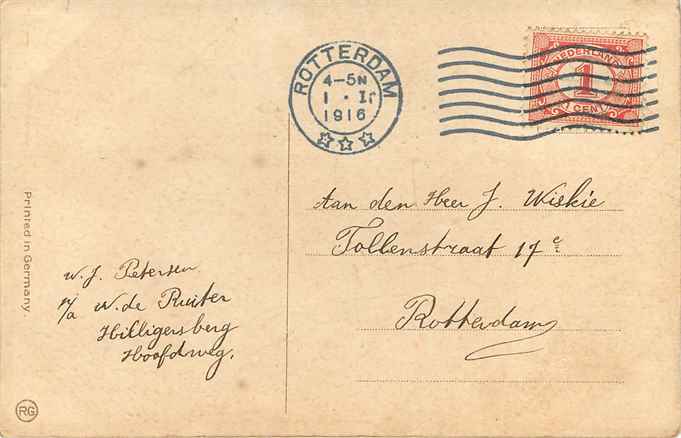 ROTTERDAM
4-5N
1 · II
1916
NEDERLAND
1
CENT
Aan den Heer J. Wiskie
Tollenstraat 17 c
Rotterdam
W. J. Petersen
p/a W. de Ruiter
Hilligersberg
Hoofdweg.
Printed in Germany.
RG